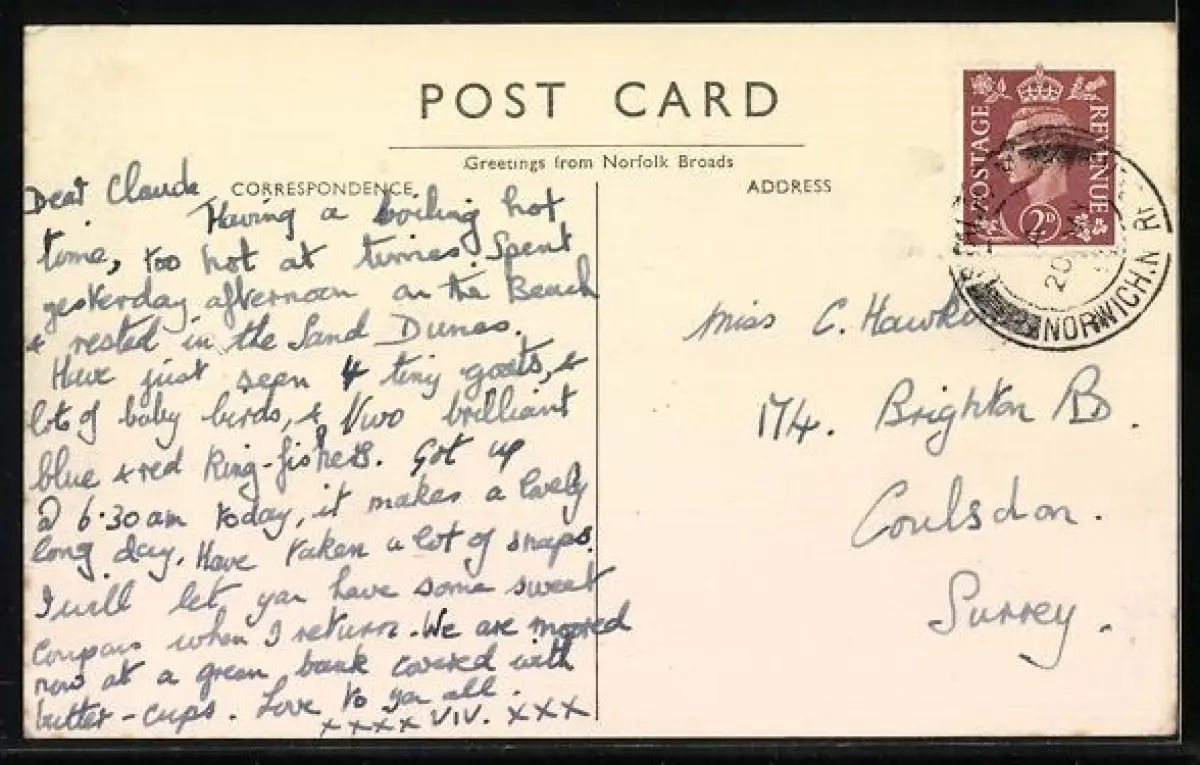 POST CARD
Greetings from Norfolk Broads
CORRESPONDENCE
ADDRESS
Dear Claude
Having a boiling hot
time, too hot at times. Spent
yesterday afternoon on the Beach
& rested in the Sand Dunes.
Have just seen 4 tiny goats, &
lot of baby birds, & two brilliant
blue & red King-fishers. Got up
@ 6.30am today, it makes a lovely
long day. Have taken a lot of snaps.
I will let you have some sweet
coupons when I return. We are moored
now at a green bank covered with
butter-cups. Love to you all.
xxxx VIV. xxx
POSTAGE
REVENUE
2D
20 MY
NORWICH.N
Miss C. Hawkin
174. Brighton RD.
Coulsdon.
Surrey.